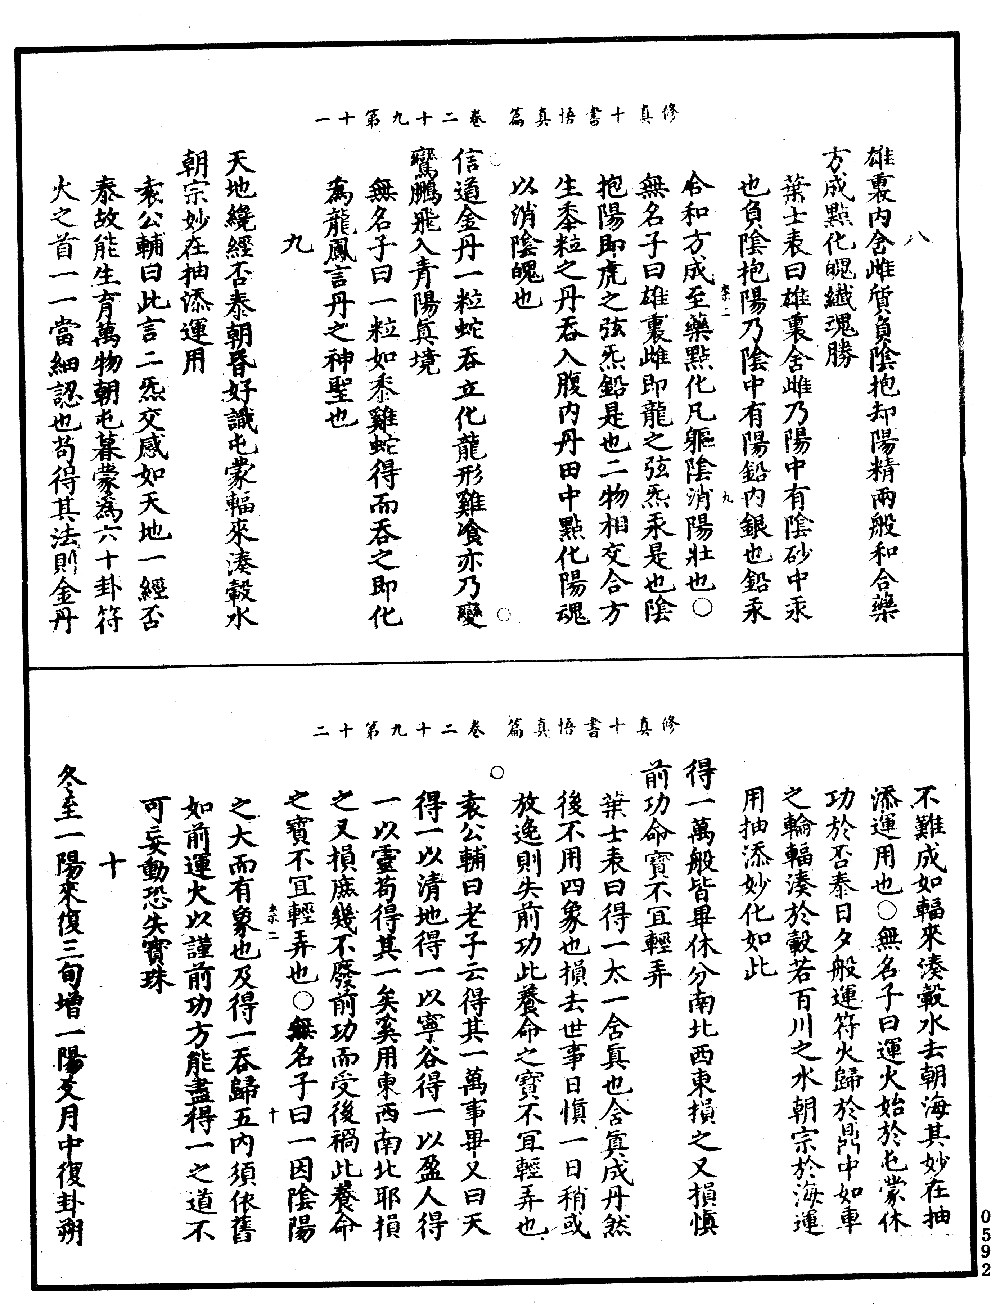 修真十書悟真篇　卷二十九第十一
八
雄裏內含雌質負陰抱却陽精兩般和合藥
方成點化魄纖魂勝
葉士表曰雄裏含雌乃陽中有陰砂中汞
也負陰抱陽乃陰中有陽鉛內銀也鉛汞
合和方成至藥點化凡軀陰消陽壯也○
無名子曰雄裏雌即龍之弦炁汞是也陰
抱陽即虎之弦炁鉛是也二物相交合方
生黍粒之丹吞入腹內丹田中點化陽魂
以消陰魄也
信道金丹一粒蛇吞立化龍形雞飡亦乃變
鸞鵬飛入青陽真境
無名子曰一粒如黍雞蛇得而吞之即化
為龍鳳言丹之神聖也
九
天地纔經否泰朝昏好識屯蒙輻來湊轂水
朝宗妙在抽添運用
袁公輔曰此言二炁交感如天地一經否
泰故能生育萬物朝屯暮蒙為六十卦符
火之首一一當細認也苟得其法則金丹
修真十書悟真篇　卷二十九第十二
不難成如輻來湊轂水去朝海其妙在抽
添運用也○無名子曰運火始於屯蒙休
功於否泰日夕般運符火歸於鼎中如車
之輪輻湊於轂若百川之水朝宗於海運
用抽添妙化如此
得一萬般皆畢休分南北西東損之又損慎
前功命寶不宜輕弄
葉士表曰得一太一含真也含真成丹然
後不用四象也損去世事日慎一日稍或
放逸則失前功此養命之寶不宜輕弄也
○
袁公輔曰老子云得其一萬事畢又曰天
得一以清地得一以寧谷得一以盈人得
一以靈苟得其一矣奚用東西南北耶損
之又損庶幾不廢前功而受後禍此養命
之寶不宜輕弄也○無名子曰一因陰陽
之大而有象也及得一吞歸五內須依舊
如前運火以謹前功方能盡得一之道不
可妄動恐失寶珠
十
冬至一陽來復三旬增一陽爻月中復卦朔
0592